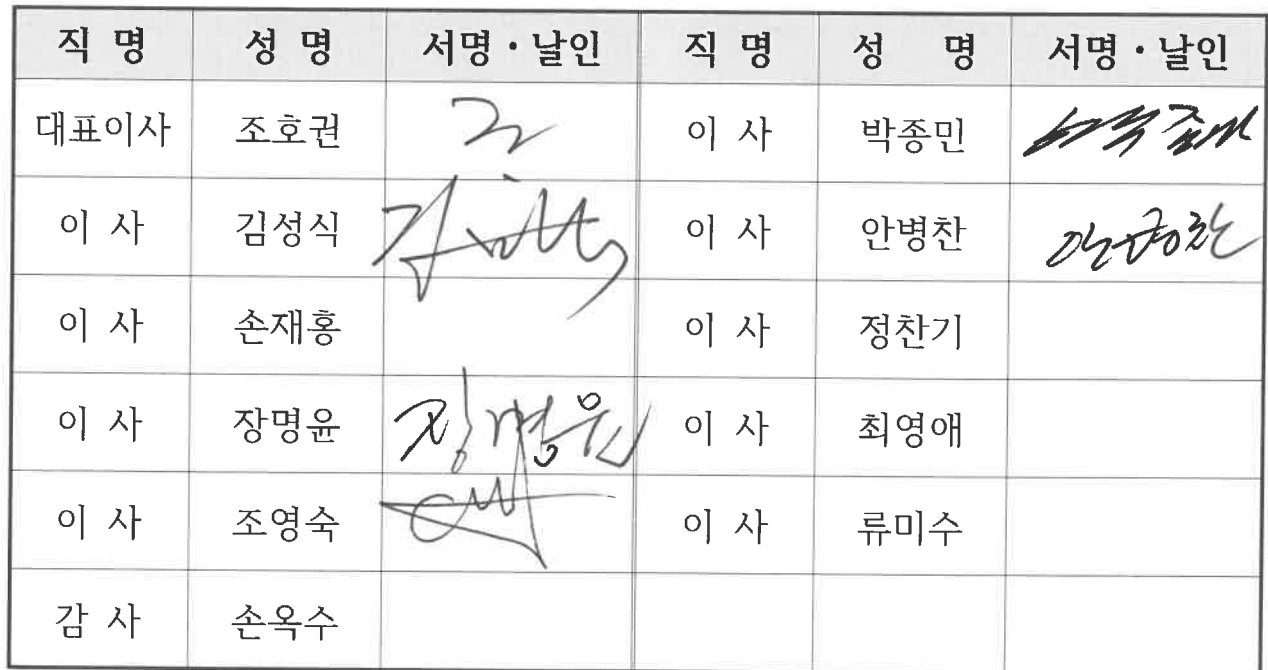 직 명 성 명 서명·날인 직 명 성 명 서명·날인
대표이사 조호권 이 사 박종민 박종민
이 사 김성식 이 사 안병찬 안병찬
이 사 손재홍 이 사 정찬기
이 사 장명윤 장명윤 이 사 최영애
이 사 조영숙 이 사 류미수
감 사 손옥수